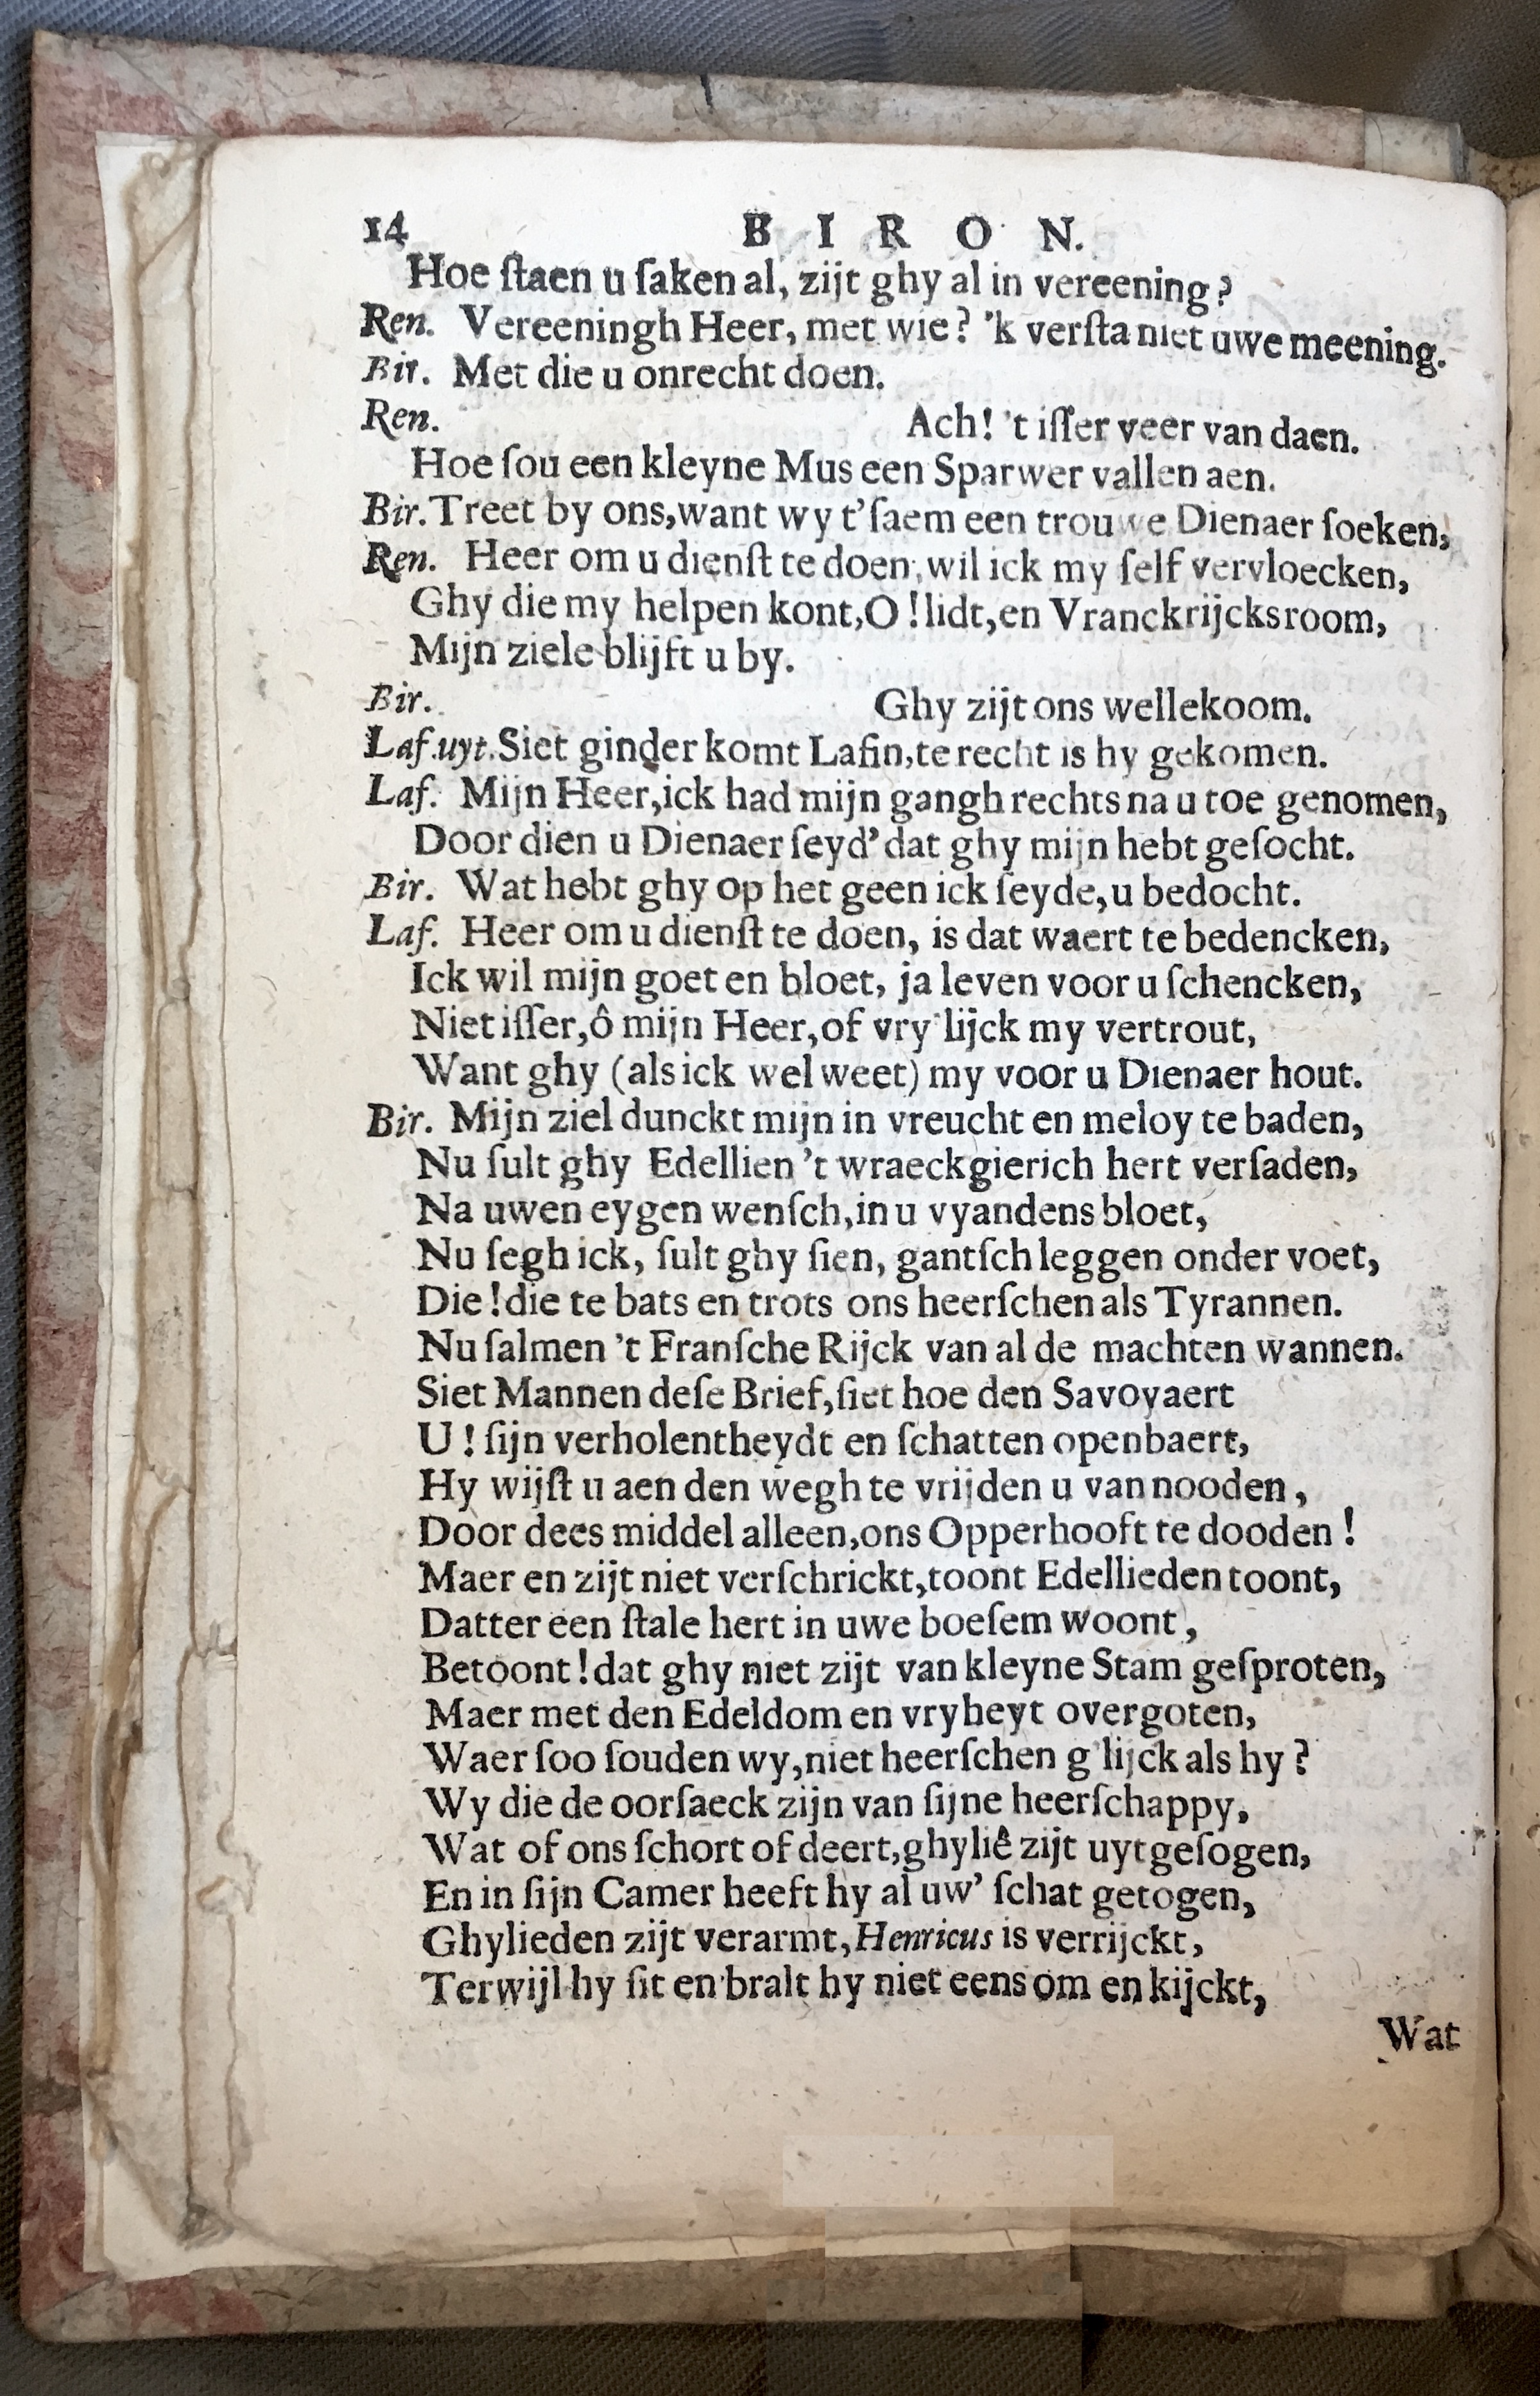 14 BIRON.
Hoe ſtaen u ſaken al, zijt ghy al in vereening?
Ren. Vereeningh Heer, met wie? 'k verſta niet uwe meening.
Bir. Met die u onrecht doen.
Ren. Ach! 't iſſer veer van daen.
Hoe ſou een kleyne Mus een Sparwer vallen aen.
Bir. Treet by ons, want wy t'ſaem een trouwe Dienaer ſoeken,
Ren. Heer om u dienſt te doen, wil ick my ſelf vervloecken,
Ghy die my helpen kont, O! lidt, en Vranckrijcksroom,
Mijn ziele blijft u by.
Bir. Ghy zijt ons wellekoom.
Laf. uyt. Siet ginder komt Lafin, te recht is hy gekomen.
Laf. Mijn Heer, ick had mijn gangh rechts na u toe genomen,
Door dien u Dienaer ſeyd' dat ghy mijn hebt geſocht.
Bir. Wat hebt ghy op het geen ick ſeyde, u bedocht.
Laf. Heer om u dienſt te doen, is dat waert te bedencken,
Ick wil mijn goet en bloet, ja leven voor u ſchencken,
Niet iſſer, ô mijn Heer, of vry'lijck my vertrout,
Want ghy (als ick wel weet) my voor u Dienaer hout.
Bir. Mijn ziel dunckt mijn in vreucht en meloy te baden,
Nu ſult ghy Edellien 't wraeckgierich hert verſaden,
Na uwen eygen wenſch, in u vyandens bloet,
Nu ſegh ick, ſult ghy ſien, gantſch leggen onder voet,
Die! die te bats en trots ons heerſchen als Tyrannen.
Nu ſalmen 't Franſche Rijck van al de machten wannen.
Siet Mannen deſe Brief, ſiet hoe den Savoyaert
U! ſijn verholentheydt en ſchatten openbaert,
Hy wijſt u aen den wegh te vrijden u van nooden,
Door dees middel alleen, ons Opperhooft te dooden!
Maer en zijt niet verſchrickt, toont Edellieden toont,
Datter een ſtale hert in uwe boeſem woont,
Betoont! dat ghy niet zijt van kleyne Stam geſproten,
Maer met den Edeldom en vryheyt overgoten,
Waer ſoo ſouden wy, niet heerſchen g'lijck als hy?
Wy die de oorſaeck zijn van ſijne heerſchappy,
Wat of ons ſchort of deert, ghyliê zijt uytgeſogen,
En in ſijn Camer heeft hy al uw' ſchat getogen,
Ghylieden zijt verarmt, Henricus is verrijckt,
Terwijl hy ſit en bralt hy niet eens om en kijckt,
Wat